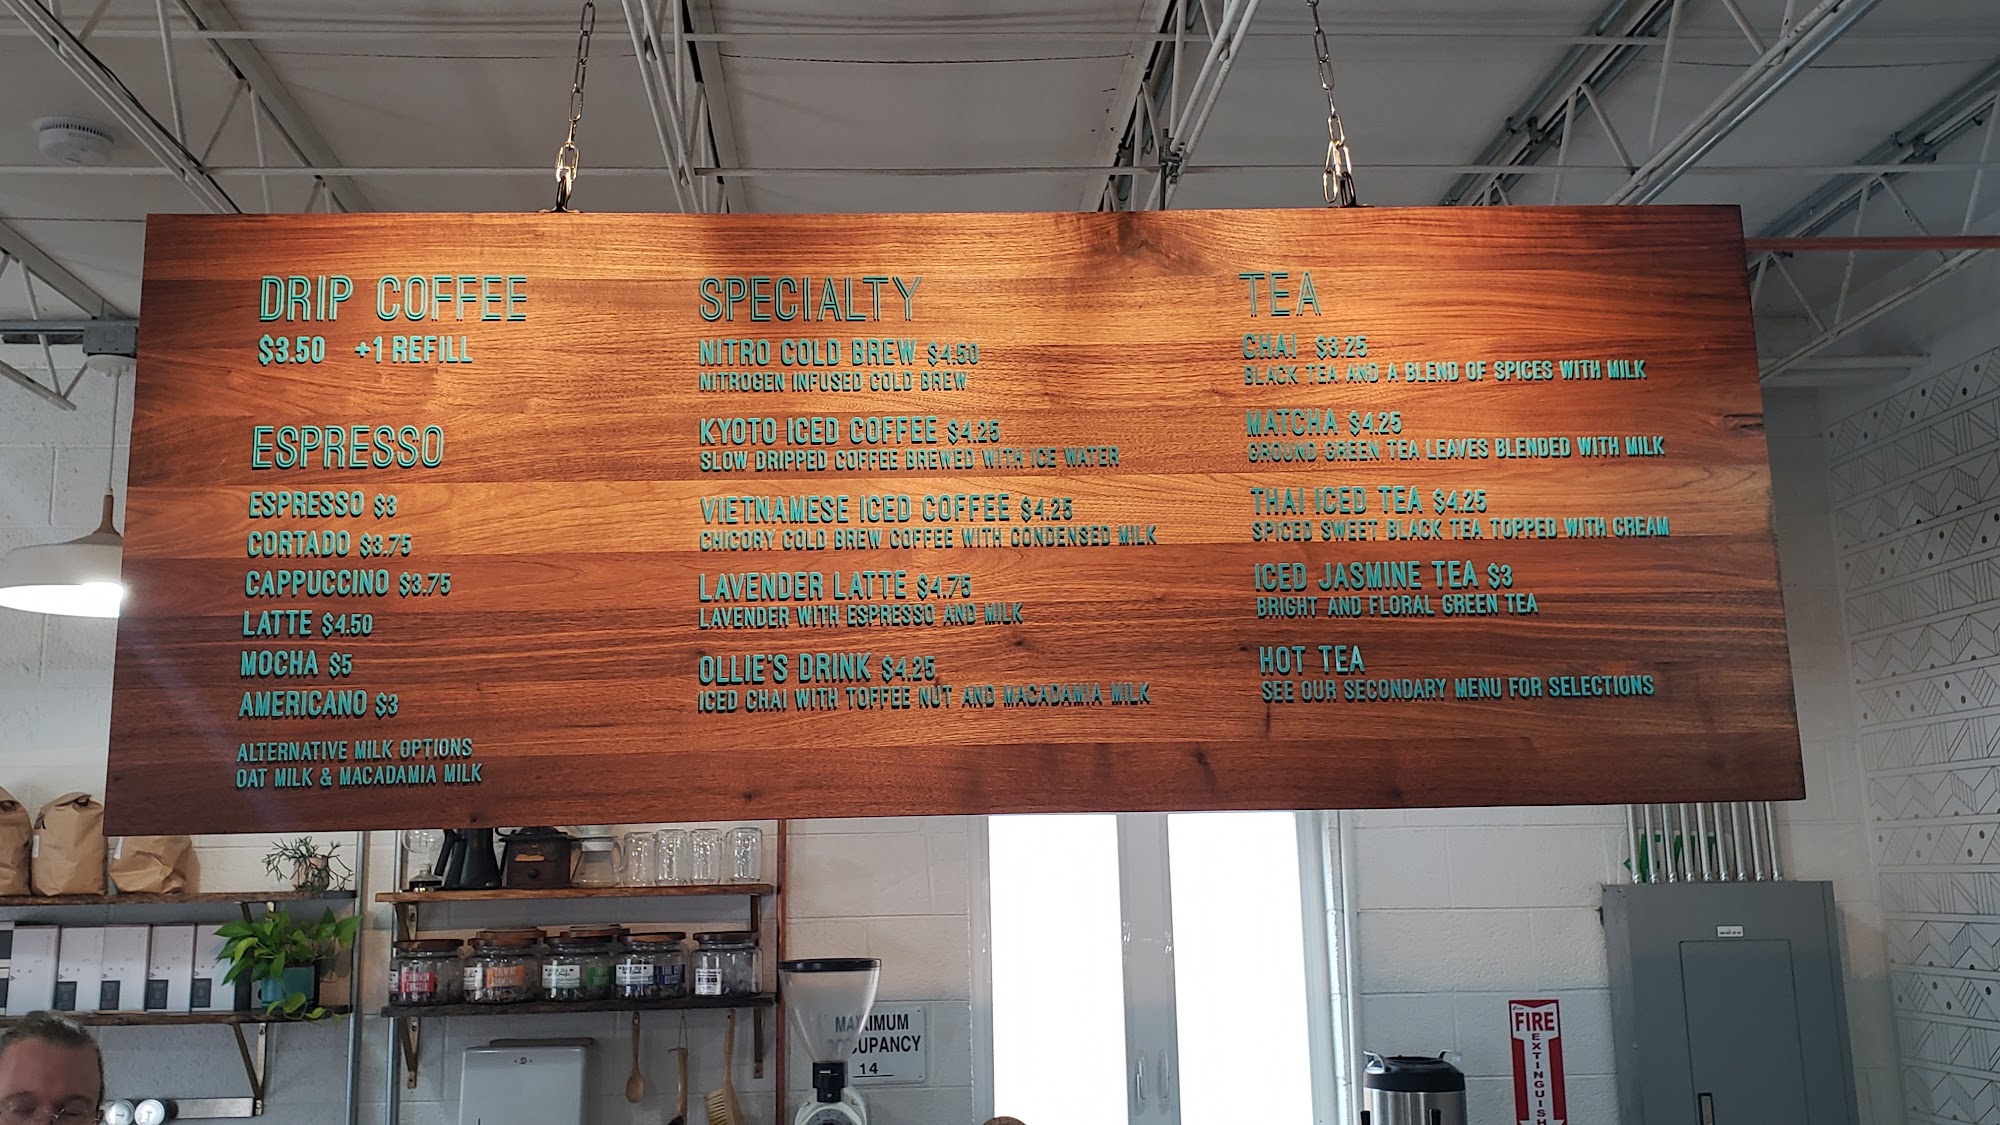 DRIP COFFEE
$3.50 +1 REFILL
ESPRESSO
ESPRESSO $3
CORTADO $3.75
CAPPUCCINO $3.75
LATTE $4.50
MOCHA $5
AMERICANO $3
ALTERNATIVE MILK OPTIONS
OAT MILK & MACADAMIA MILK
SPECIALTY
NITRO COLD BREW $4.50
NITROGEN INFUSED COLD BREW
KYOTO ICED COFFEE $4.25
SLOW DRIPPED COFFEE BREWED WITH ICE WATER
VIETNAMESE ICED COFFEE $4.25
CHICORY COLD BREW COFFEE WITH CONDENSED MILK
LAVENDER LATTE $4.75
LAVENDER WITH ESPRESSO AND MILK
OLLIE'S DRINK $4.25
ICED CHAI WITH TOFFEE NUT AND MACADAMIA MILK
TEA
CHAI $3.25
BLACK TEA AND A BLEND OF SPICES WITH MILK
MATCHA $4.25
GROUND GREEN TEA LEAVES BLENDED WITH MILK
THAI ICED TEA $4.25
SPICED SWEET BLACK TEA TOPPED WITH CREAM
ICED JASMINE TEA $3
BRIGHT AND FLORAL GREEN TEA
HOT TEA
SEE OUR SECONDARY MENU FOR SELECTIONS
MAXIMUM
OCCUPANCY
14
FIRE
EXTINGUISH